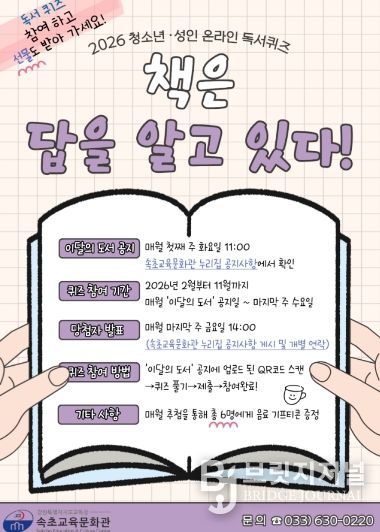 독서 퀴즈
참여 하고
선물도 받아 가세요!
2026 청소년·성인 온라인 독서퀴즈
책은
답을 알고 있다!
이달의 도서 공지
매월 첫째 주 화요일 11:00
속초교육문화관 누리집 공지사항에서 확인
퀴즈 참여 기간
2026년 2월부터 11월까지
매월 '이달의 도서' 공지일 ~ 마지막 주 수요일
당첨자 발표
매월 마지막 주 금요일 14:00
(속초교육문화관 누리집 공지사항 게시 및 개별 연락)
퀴즈 참여 방법
'이달의 도서' 공지에 업로드 된 QR코드 스캔
→퀴즈 풀기→제출→참여완료!
기타 사항
매월 추첨을 통해 총 6명에게 음료 기프티콘 증정
브릿지저널
BRIDGE JOURNAL
강원특별자치도교육청
속초교육문화관
문의 ☎(033) 630-0220